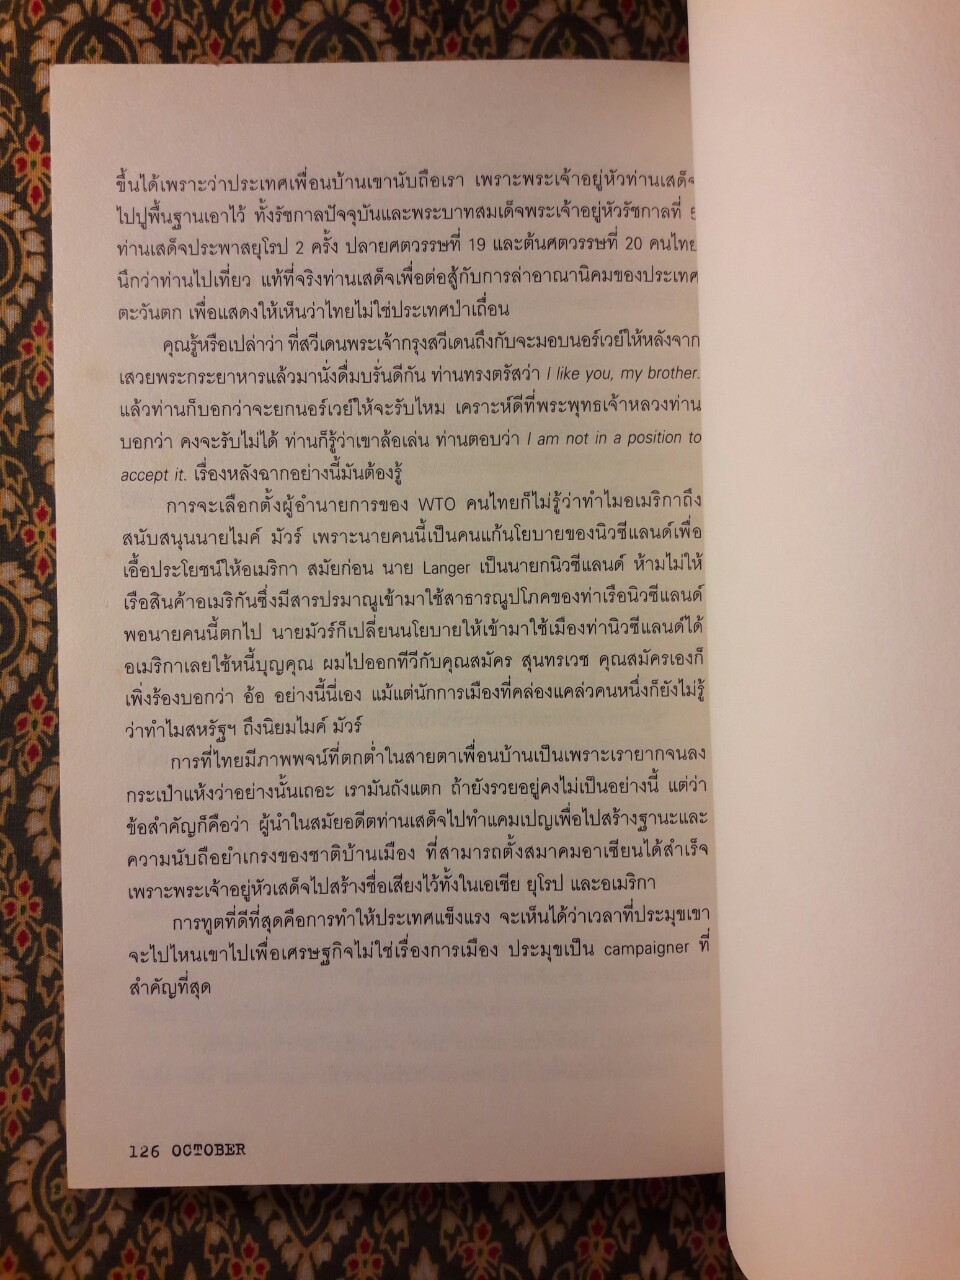 ขึ้นได้เพราะว่าประเทศเพื่อนบ้านเขานับถือเรา เพราะพระเจ้าอยู่หัวท่านเสด็จ
ไปปูพื้นฐานเอาไว้ ทั้งรัชกาลปัจจุบันและพระบาทสมเด็จพระเจ้าอยู่หัวรัชกาลที่ 5
ท่านเสด็จประพาสยุโรป 2 ครั้ง ปลายศตวรรษที่ 19 และต้นศตวรรษที่ 20 คนไทย
นึกว่าท่านไปเที่ยว แท้ที่จริงท่านเสด็จเพื่อต่อสู้กับการล่าอาณานิคมของประเทศ
ตะวันตก เพื่อแสดงให้เห็นว่าไทยไม่ใช่ประเทศป่าเถื่อน
คุณรู้หรือเปล่าว่า ที่สวีเดนพระเจ้ากรุงสวีเดนถึงกับจะมอบนอร์เวย์ให้หลังจาก
เสวยพระกระยาหารแล้วมานั่งดื่มบรั่นดีกัน ท่านทรงตรัสว่า I like you, my brother.
แล้วท่านก็บอกว่าจะยกนอร์เวย์ให้จะรับไหม เคราะห์ดีที่พระพุทธเจ้าหลวงท่าน
บอกว่า คงจะรับไม่ได้ ท่านก็รู้ว่าเขาล้อเล่น ท่านตอบว่า I am not in a position to
accept it. เรื่องหลังฉากอย่างนี้มันต้องรู้
การจะเลือกตั้งผู้อำนายการของ WTO คนไทยก็ไม่รู้ว่าทำไมอเมริกาถึง
สนับสนุนนายไมค์ มัวร์ เพราะนายคนนี้เป็นคนแก้นโยบายของนิวซีแลนด์เพื่อ
เอื้อประโยชน์ให้อเมริกา สมัยก่อน นาย Langer เป็นนายกนิวซีแลนด์ ห้ามไม่ให้
เรือสินค้าอเมริกันซึ่งมีสารปรมาณูเข้ามาใช้สาธารณูปโภคของท่าเรือนิวซีแลนด์
พอนายคนนี้ตกไป นายมัวร์ก็เปลี่ยนนโยบายให้เข้ามาใช้เมืองท่านิวซีแลนด์ได้
อเมริกาเลยใช้หนี้บุญคุณ ผมไปออกทีวีกับคุณสมัคร สุนทรเวช คุณสมัครเองก็
เพิ่งร้องบอกว่า อ้อ อย่างนี้นี่เอง แม้แต่นักการเมืองที่คล่องแคล่วคนหนึ่งก็ยังไม่รู้
ว่าทำไมสหรัฐฯ ถึงนิยมไมค์ มัวร์
การที่ไทยมีภาพพจน์ที่ตกต่ำในสายตาเพื่อนบ้านเป็นเพราะเรายากจนลง
กระเป๋าแห้งว่าอย่างนั้นเถอะ เรามันถังแตก ถ้ายังรวยอยู่คงไม่เป็นอย่างนี้ แต่ว่า
ข้อสำคัญก็คือว่า ผู้นำในสมัยอดีตท่านเสด็จไปทำแคมเปญเพื่อไปสร้างฐานะและ
ความนับถือยำเกรงของชาติบ้านเมือง ที่สามารถตั้งสมาคมอาเซียนได้สำเร็จ
เพราะพระเจ้าอยู่หัวเสด็จไปสร้างชื่อเสียงไว้ทั้งในเอเชีย ยุโรป และอเมริกา
การทูตที่ดีที่สุดคือการทำให้ประเทศแข็งแรง จะเห็นได้ว่าเวลาที่ประมุขเขา
จะไปไหนเขาไปเพื่อเศรษฐกิจไม่ใช่เรื่องการเมือง ประมุขเป็น campaigner ที่
สำคัญที่สุด
126 OCTOBER